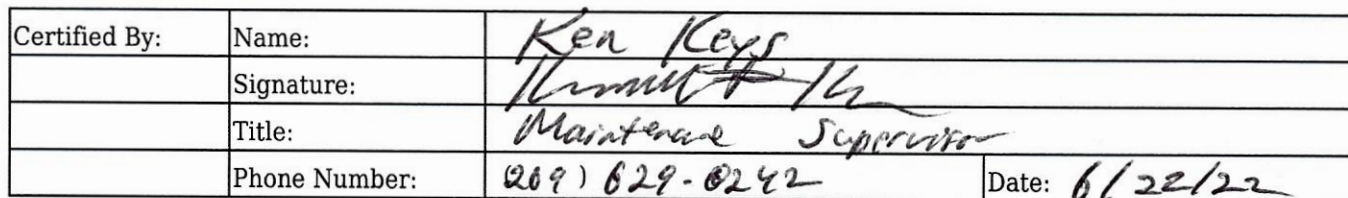 Certified By: Name: Ken Keys
Signature:
Title: Maintenance Supervisor
Phone Number: (209) 629-0242 Date: 6/22/22